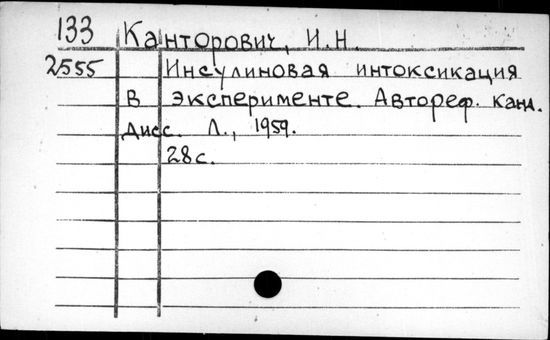 133 Канторович, И.Н.
2555 Инсулиновая интоксикация
в эксперименте. Автореф. канд.
дисс. Л., 1959.
28 с.